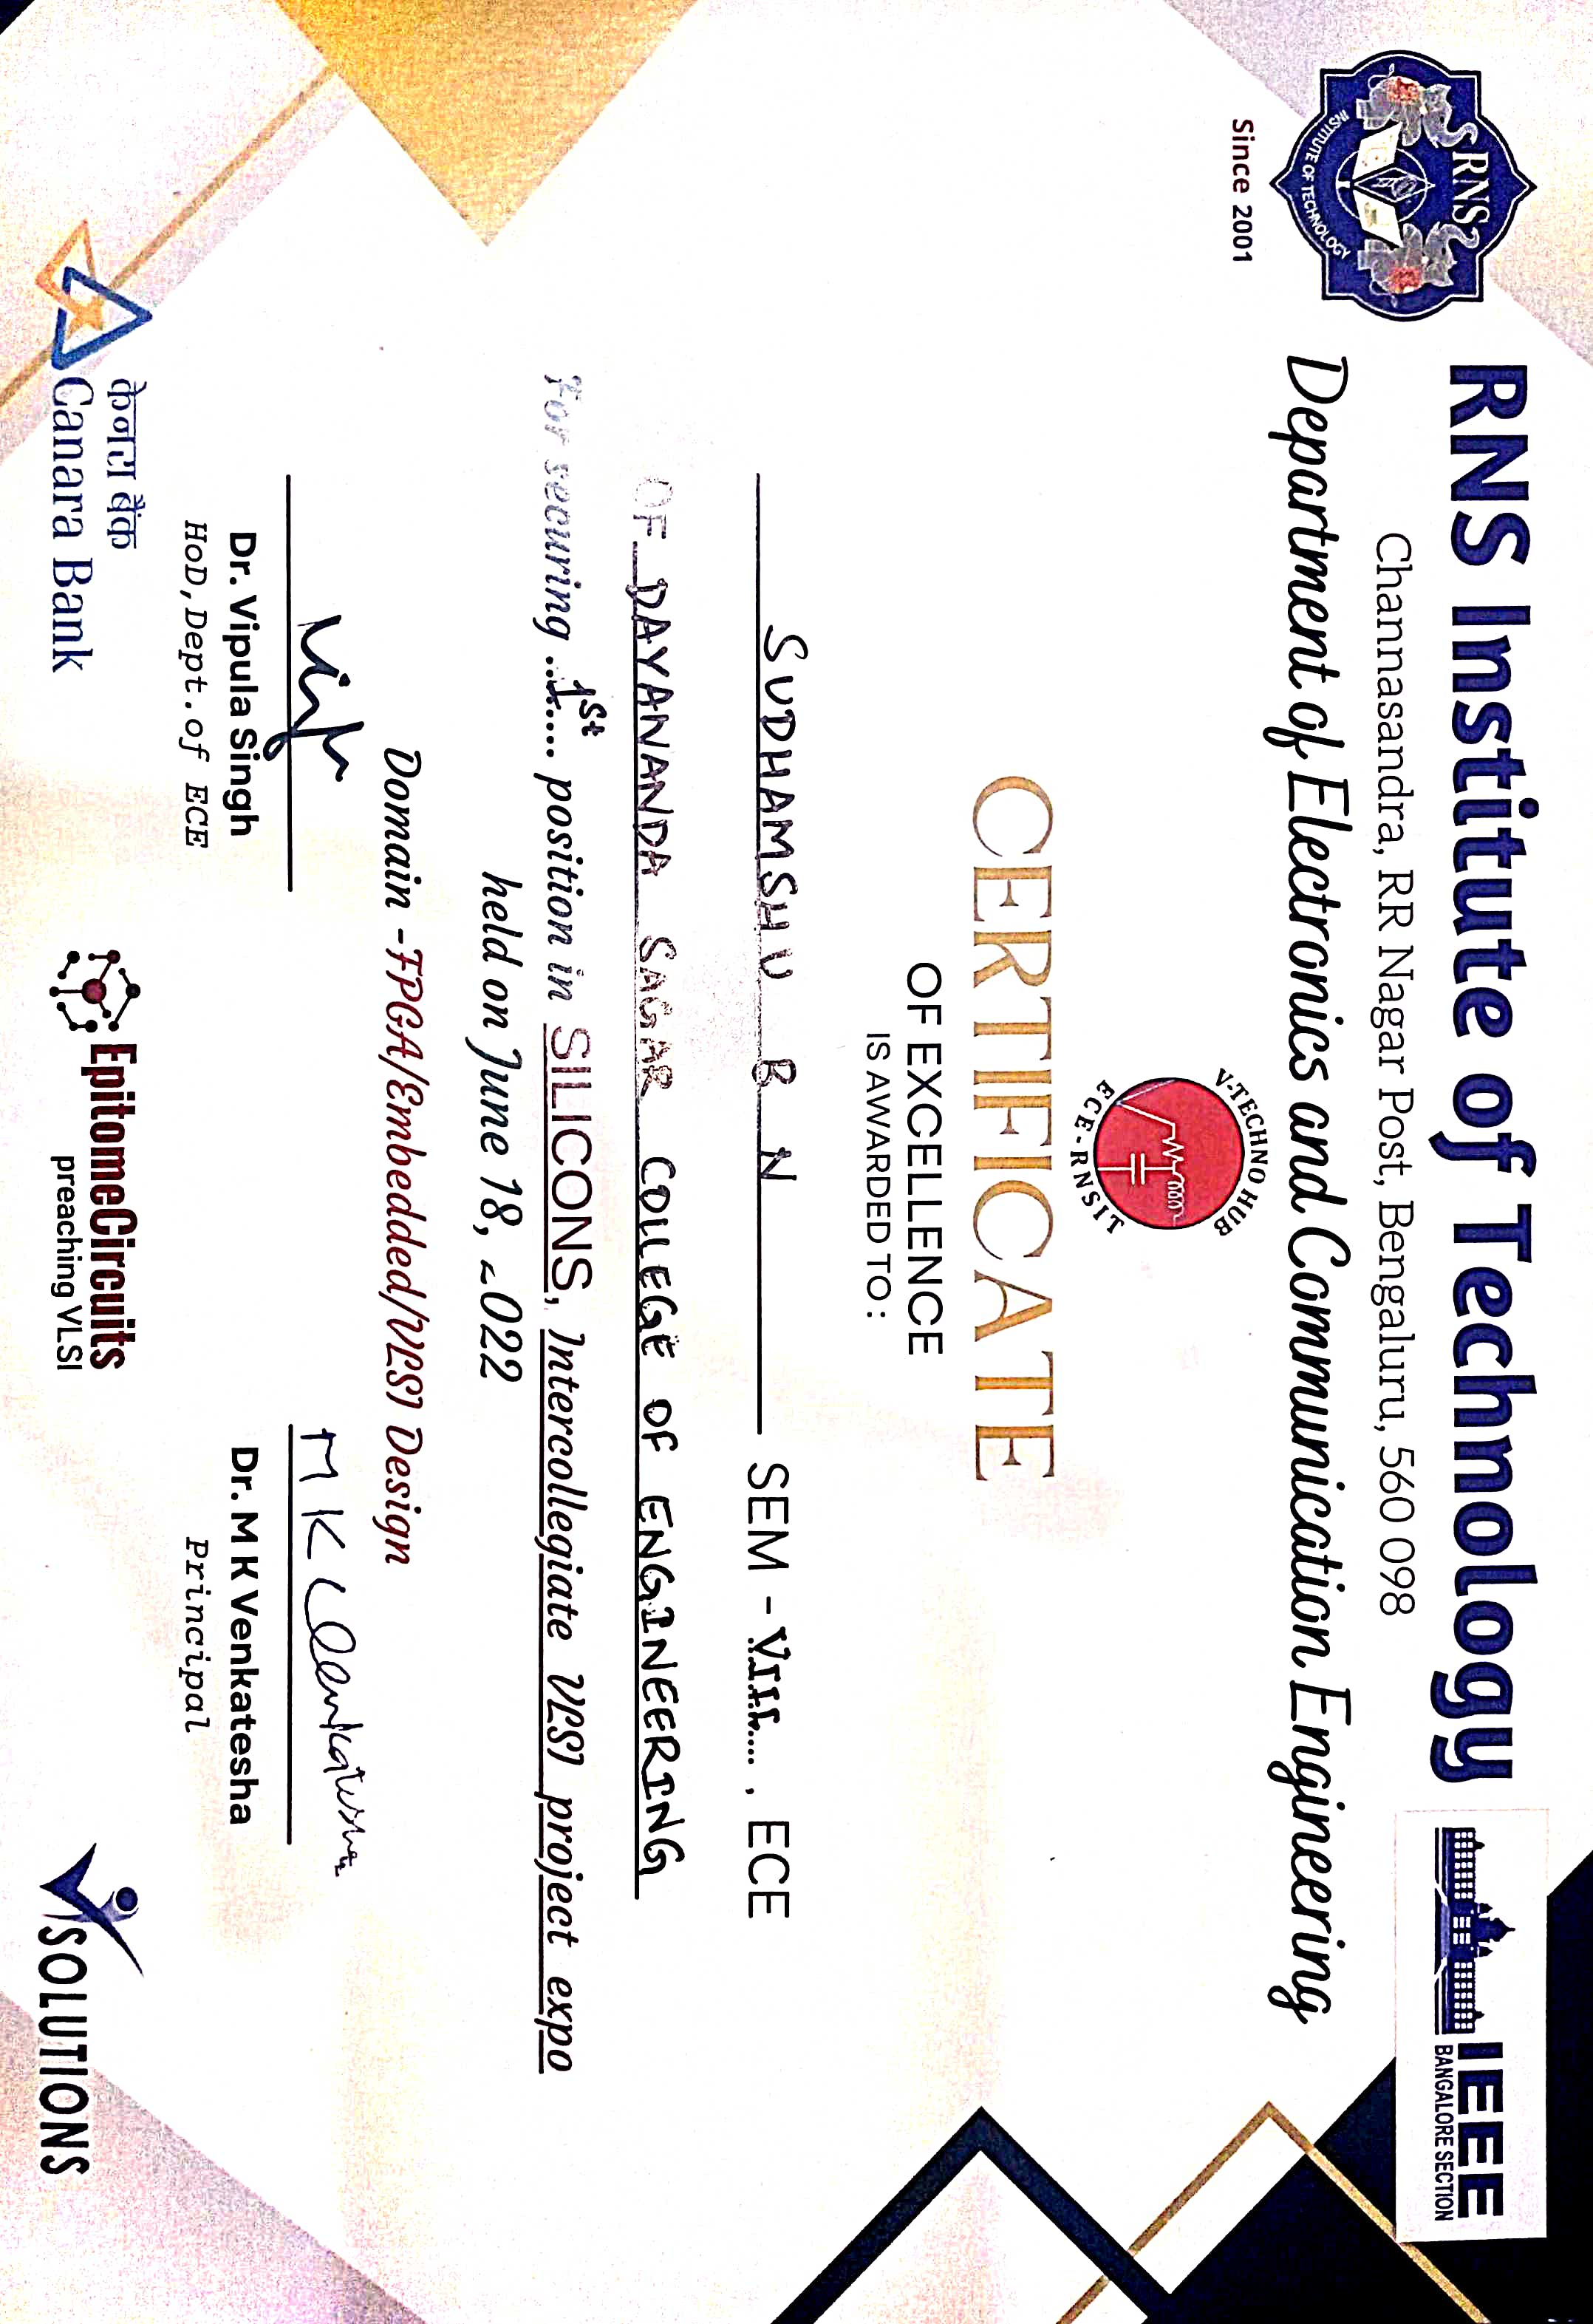 RNS
INSTITUTE OF TECHNOLOGY
Since 2001
RNS Institute of Technology
Channasandra, RR Nagar Post, Bengaluru, 560 098
Department of Electronics and Communication Engineering
IEEE
BANGALORE SECTION
V-TECHNO HUB
ECE-RNSIT
CERTIFICATE
OF EXCELLENCE
IS AWARDED TO:
SUDHAMSHU B N SEM - VII...., ECE
OF DAYANANDA SAGAR COLLEGE OF ENGINEERING
For securing ..1st.... position in SILICONS, Intercollegiate VLSI project expo
held on June 18, 2022
Domain -FPGA/Embedded/VLSI Design
M K Venkatesha
Dr. Vipula Singh
HoD, Dept. of ECE
Dr. M K Venkatesha
Principal
केनरा बैंक
Canara Bank
EpitomeCircuits
preaching VLSI
SOLUTIONS